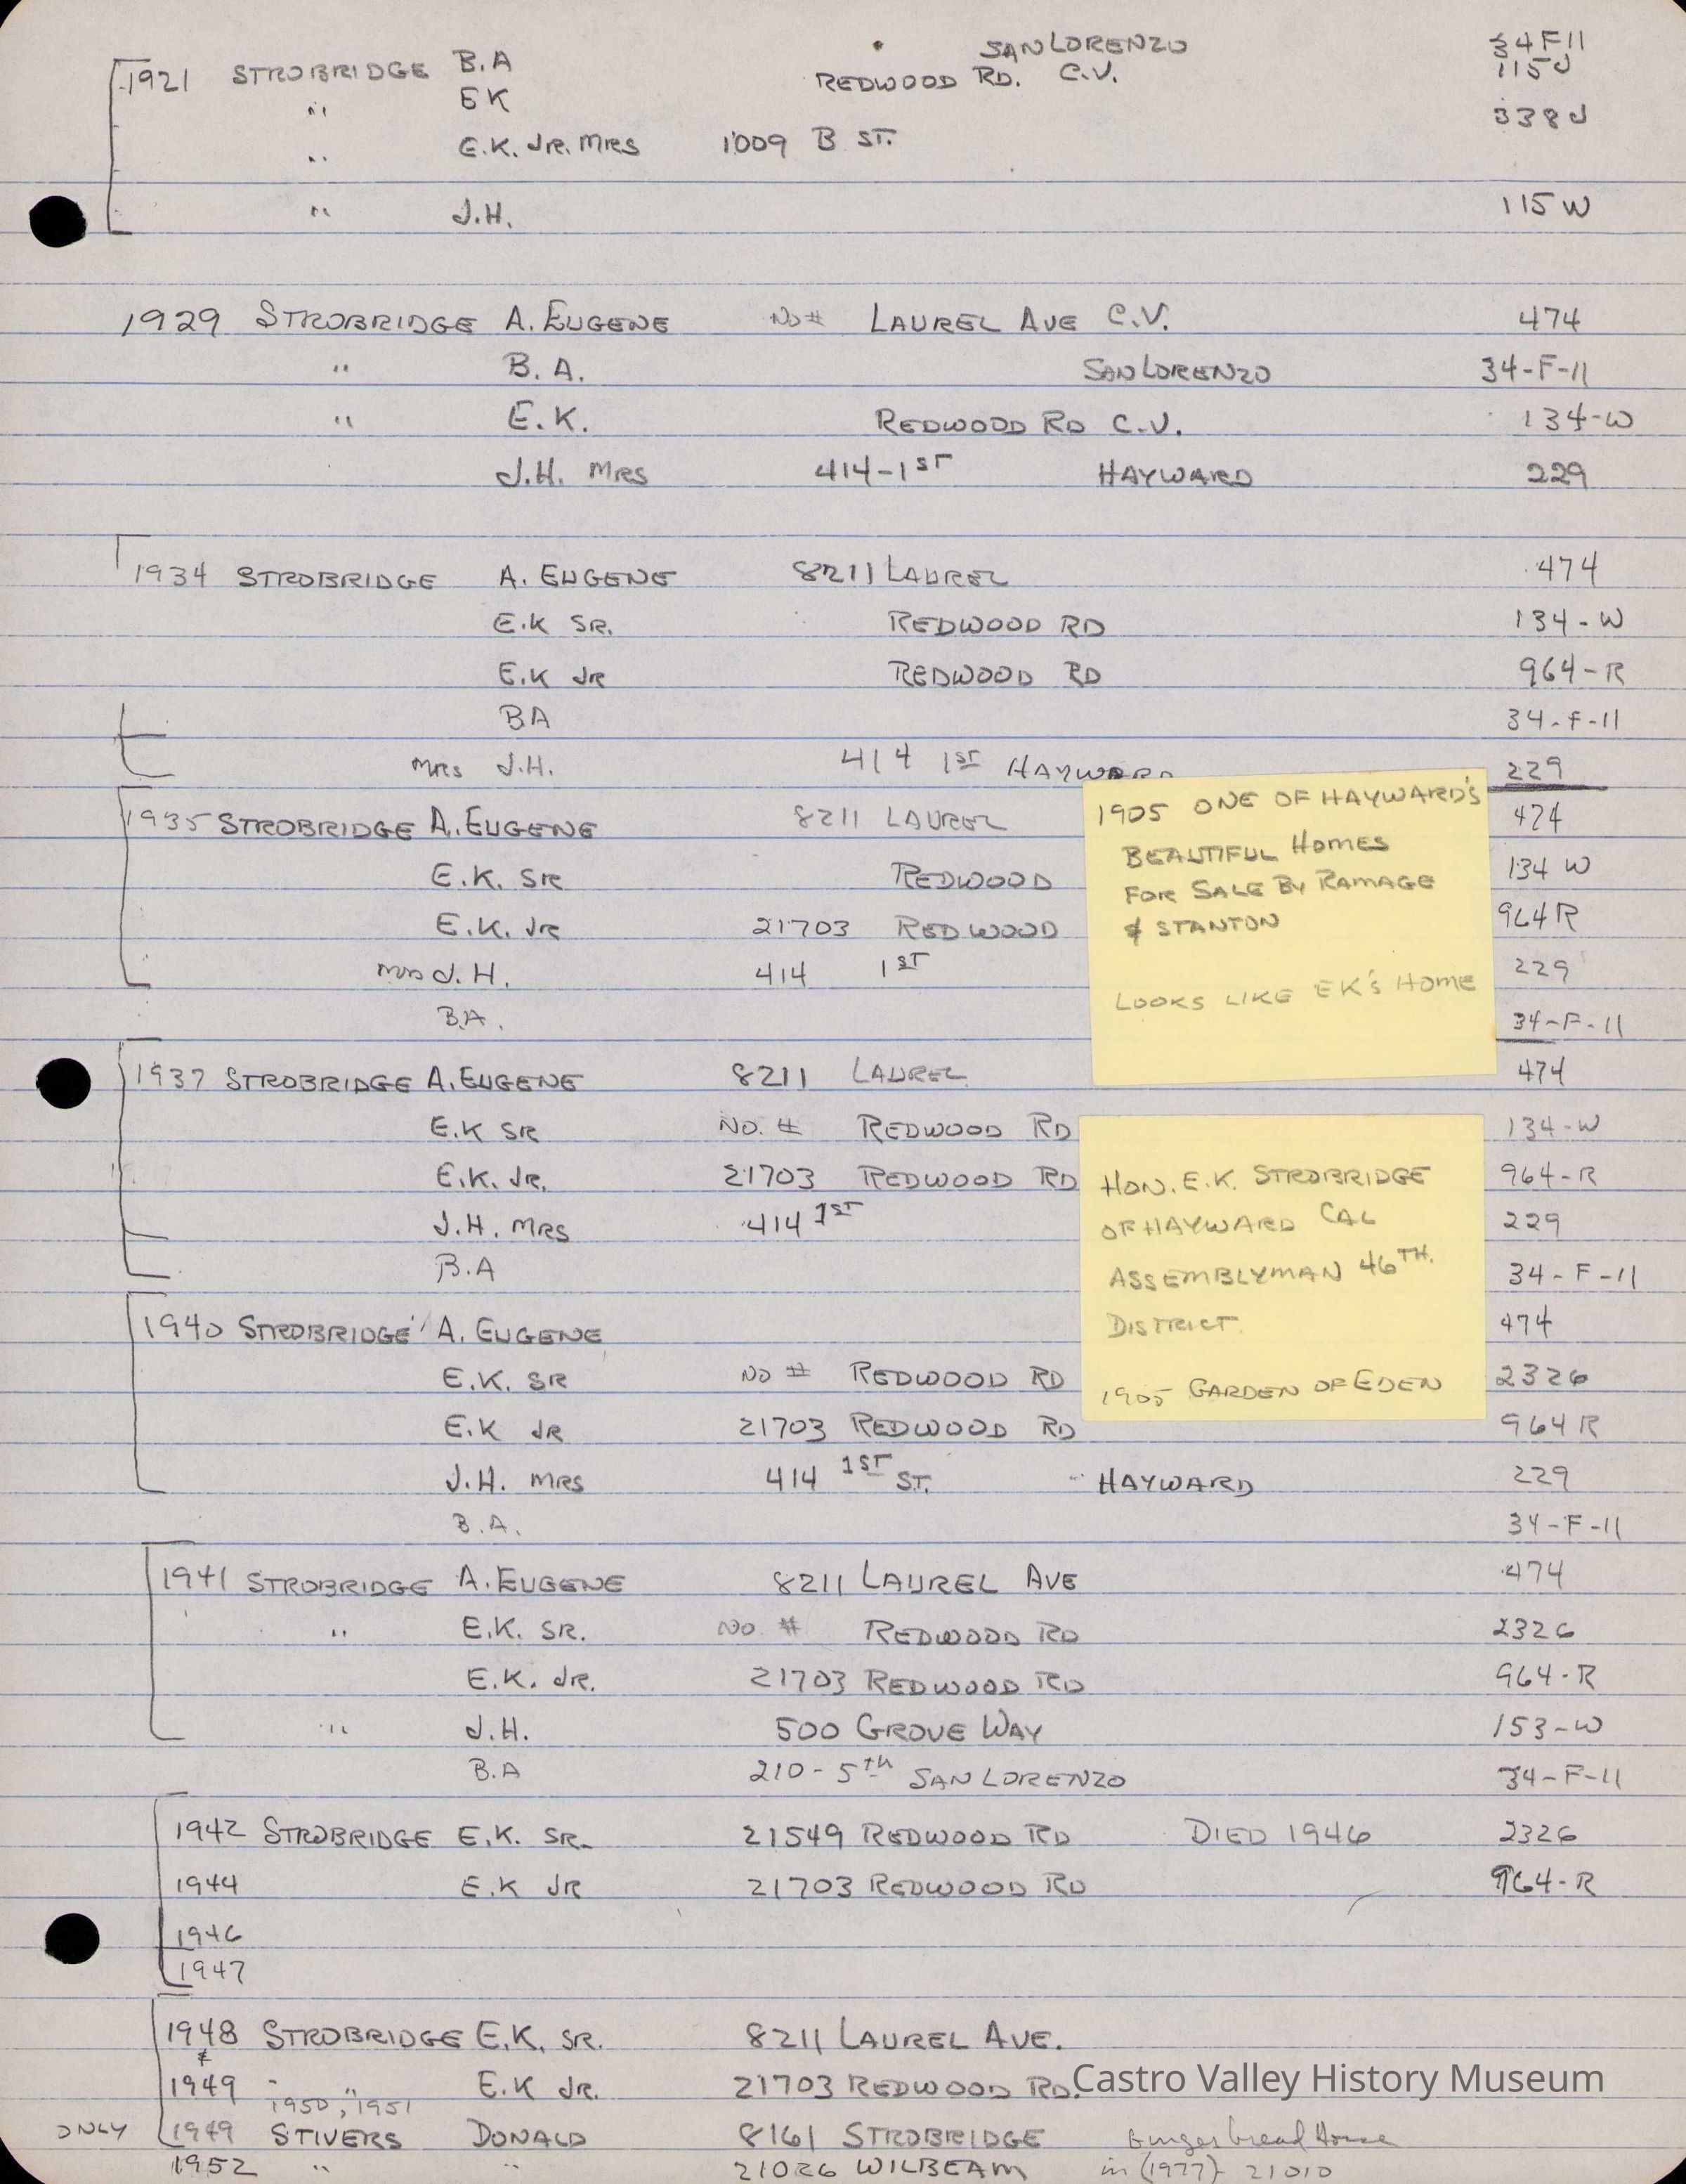 1921 STROBRIDGE B.A SAN LORENZO 34F11
" EK REDWOOD RD. C.V. 115J
" E.K. JR. MRS 1009 B ST. 338J
" J.H. 115W
1929 STROBRIDGE A. EUGENE NO # LAUREL AVE C.V. 474
" B. A. SAN LORENZO 34-F-11
" E. K. REDWOOD RD C.V. 134-W
J.H. MRS 414-1ST HAYWARD 229
1934 STROBRIDGE A. EUGENE 8211 LAUREL 474
E.K SR. REDWOOD RD 134-W
E.K JR REDWOOD RD 964-R
B.A 34-F-11
MRS J.H. 414 1ST HAYWARD 229
1935 STROBRIDGE A. EUGENE 8211 LAUREL 474
E.K. SR REDWOOD 134 W
E.K. JR 21703 REDWOOD 964R
MRS J.H. 414 1ST 229
B.A. 34-F-11
1905 ONE OF HAYWARD'S
BEAUTIFUL HOMES
FOR SALE BY RAMAGE
& STANTON
LOOKS LIKE EK'S HOME
1937 STROBRIDGE A. EUGENE 8211 LAUREL 474
E.K SR NO. # REDWOOD RD 134-W
E.K. JR. 21703 REDWOOD RD 964-R
J.H. MRS 414 1ST 229
B.A 34-F-11
HON. E.K. STROBRIDGE
OF HAYWARD CAL
ASSEMBLYMAN 46TH.
DISTRICT.
1905 GARDEN OF EDEN
1940 STROBRIDGE A. EUGENE 474
E.K. SR NO # REDWOOD RD 2326
E.K JR 21703 REDWOOD RD 964R
J.H. MRS 414 1ST ST. HAYWARD 229
B.A. 34-F-11
1941 STROBRIDGE A. EUGENE 8211 LAUREL AVE 474
" E.K. SR. NO # REDWOOD RD 2326
E.K. JR. 21703 REDWOOD RD 964-R
" J.H. 500 GROVE WAY 153-W
B.A 210-5TH SAN LORENZO 34-F-11
1942 STROBRIDGE E.K. SR. 21549 REDWOOD RD DIED 1946 2326
1944 E.K JR 21703 REDWOOD RD 964-R
1946
1947
1948 STROBRIDGE E.K. SR. 8211 LAUREL AVE.
&
1949 " " E.K JR. 21703 REDWOOD RD.
1950, 1951
ONLY 1949 STIVERS DONALD 8161 STROBRIDGE Gingerbread House
1952 " " 21026 WILBEAM in (1977) 21010
Castro Valley History Museum